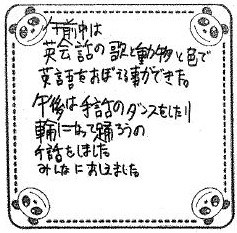 午前中は
英会話の歌と動物と色で
英語をおぼえる事ができた。
午後は手話のダンスをしたり
輪になって踊ろうの
手話をしました
みんなにおしえました